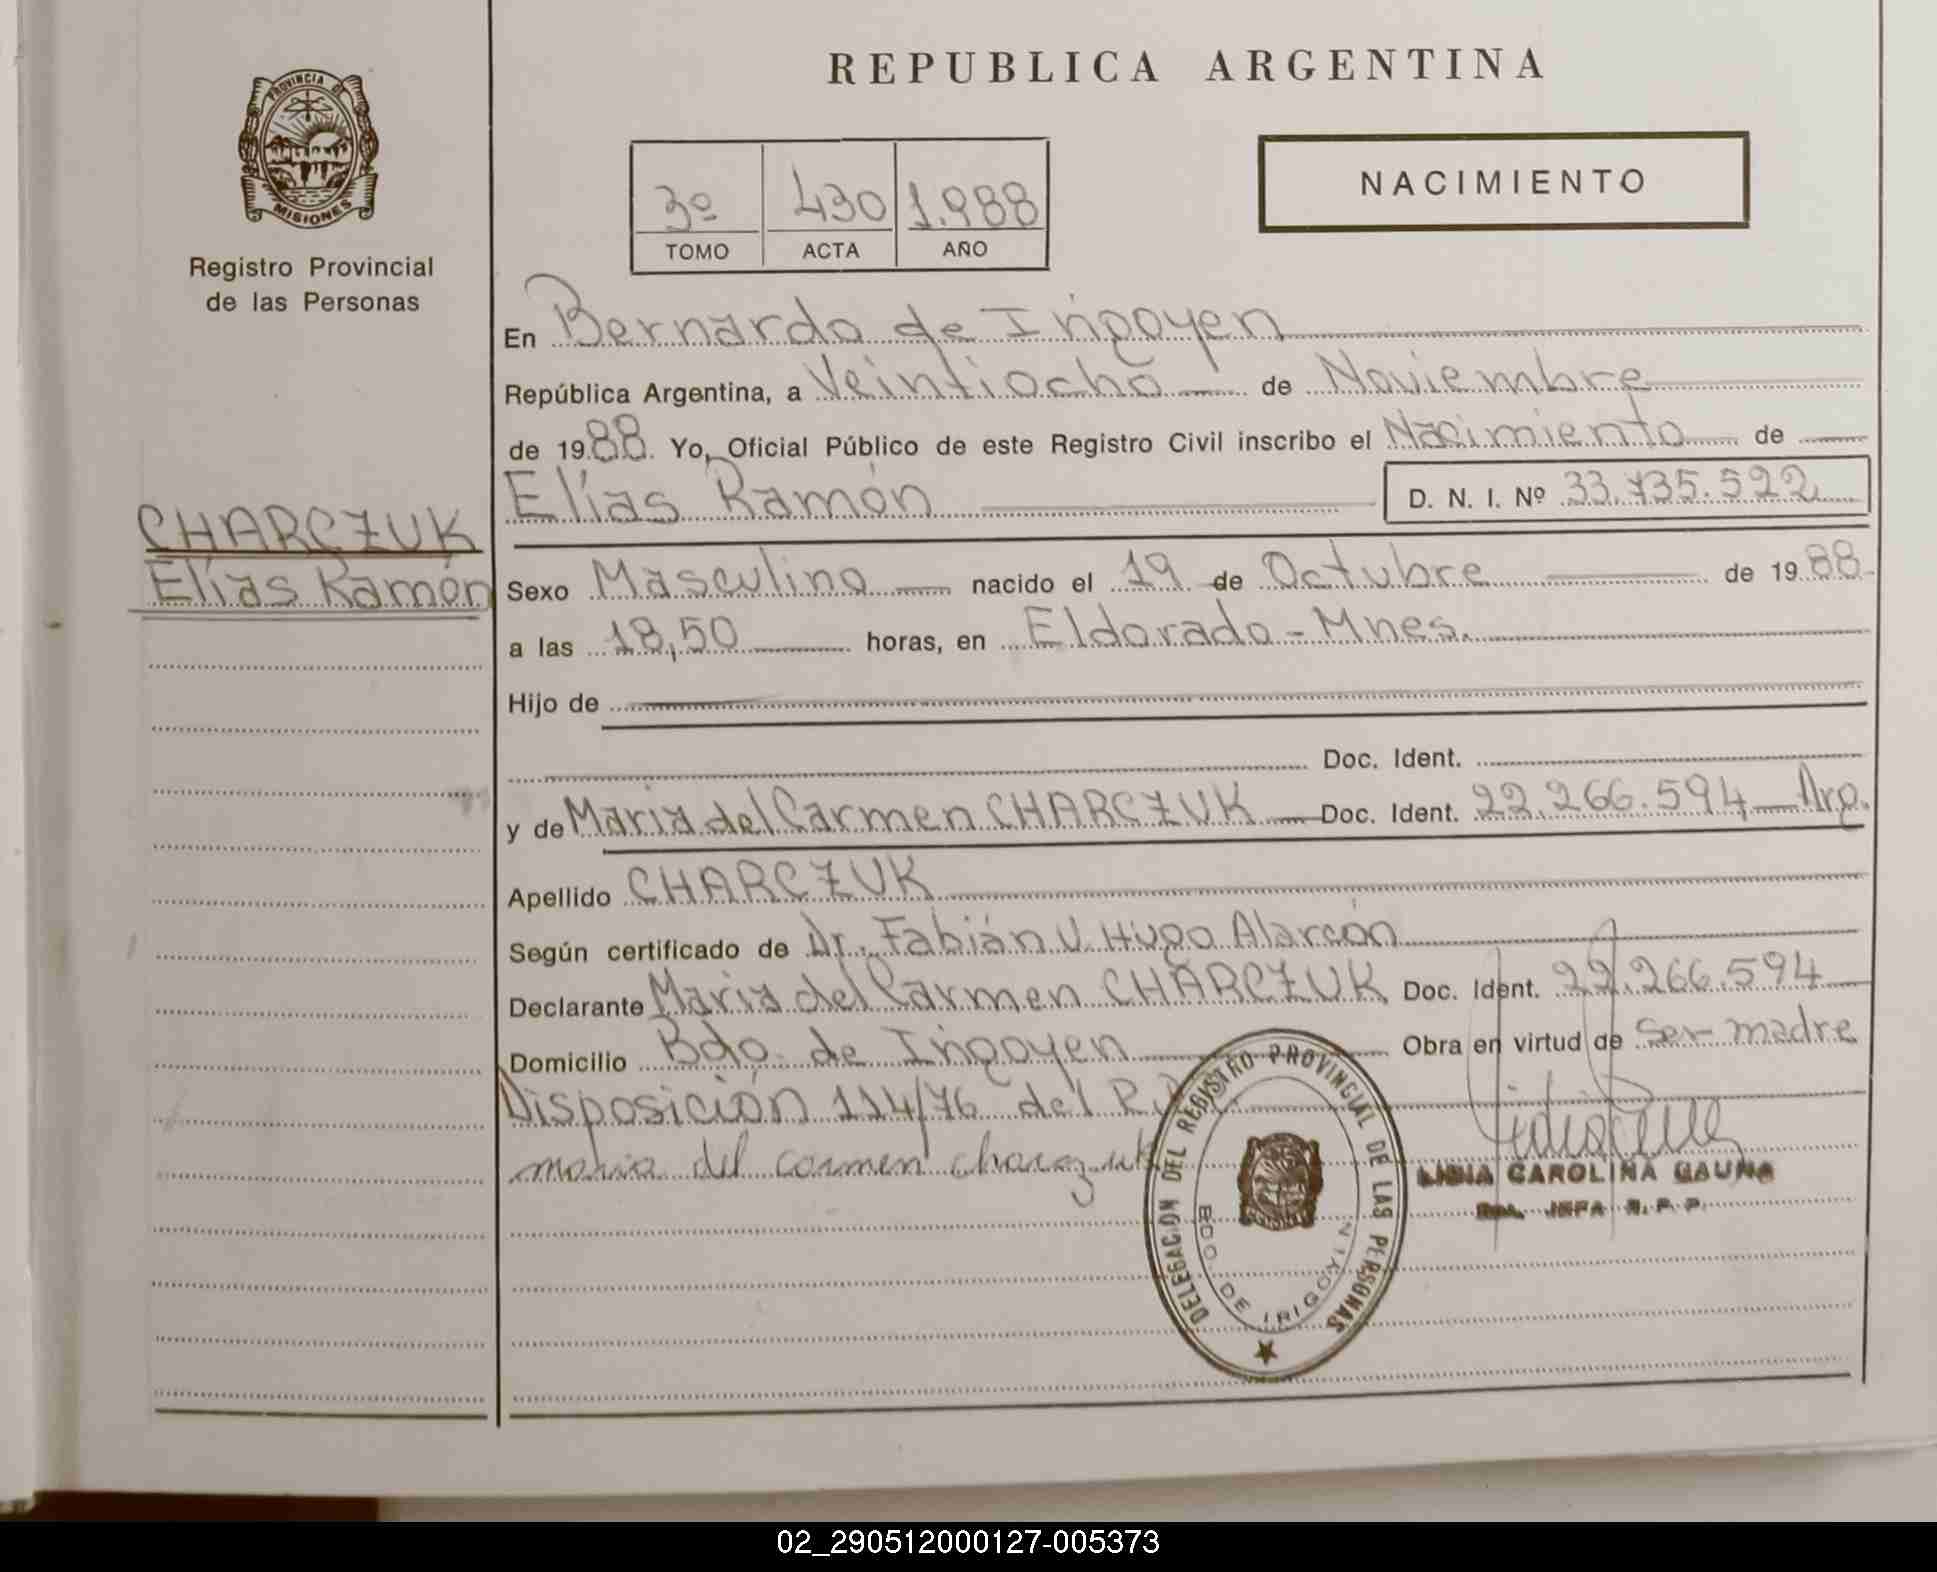 REPUBLICA ARGENTINA
PROVINCIA DE
MISIONES
Registro Provincial
de las Personas
3º 430 1.988
TOMO ACTA AÑO
NACIMIENTO
En Bernardo de Irigoyen
República Argentina, a Veintiocho de Noviembre
de 1988. Yo, Oficial Público de este Registro Civil inscribo el Nacimiento de
Elías Ramón D. N. I. Nº 33.735.522
CHARCZUK
Elías Ramón
Sexo Masculino nacido el 19 de Octubre de 1988
a las 18,50 horas, en Eldorado - Mnes.
Hijo de
Doc. Ident.
y de Maria del Carmen CHARCZUK Doc. Ident. 22.266.594 Arg.
Apellido CHARCZUK
Según certificado de Dr. Fabián V. Hugo Alarcón
Declarante Maria del Carmen CHARCZUK Doc. Ident. 22.266.594
Domicilio Bdo. de Irigoyen Obra en virtud de Ser madre
Disposición 114/76 del R.P.
maria del carmen charczuk
DELEGACION DEL REGISTRO PROVINCIAL DE LAS PERSONAS
BDO. DE IRIGOYEN
LIDIA CAROLINA GAUNA
JEFA R. P. P.
02_290512000127-005373